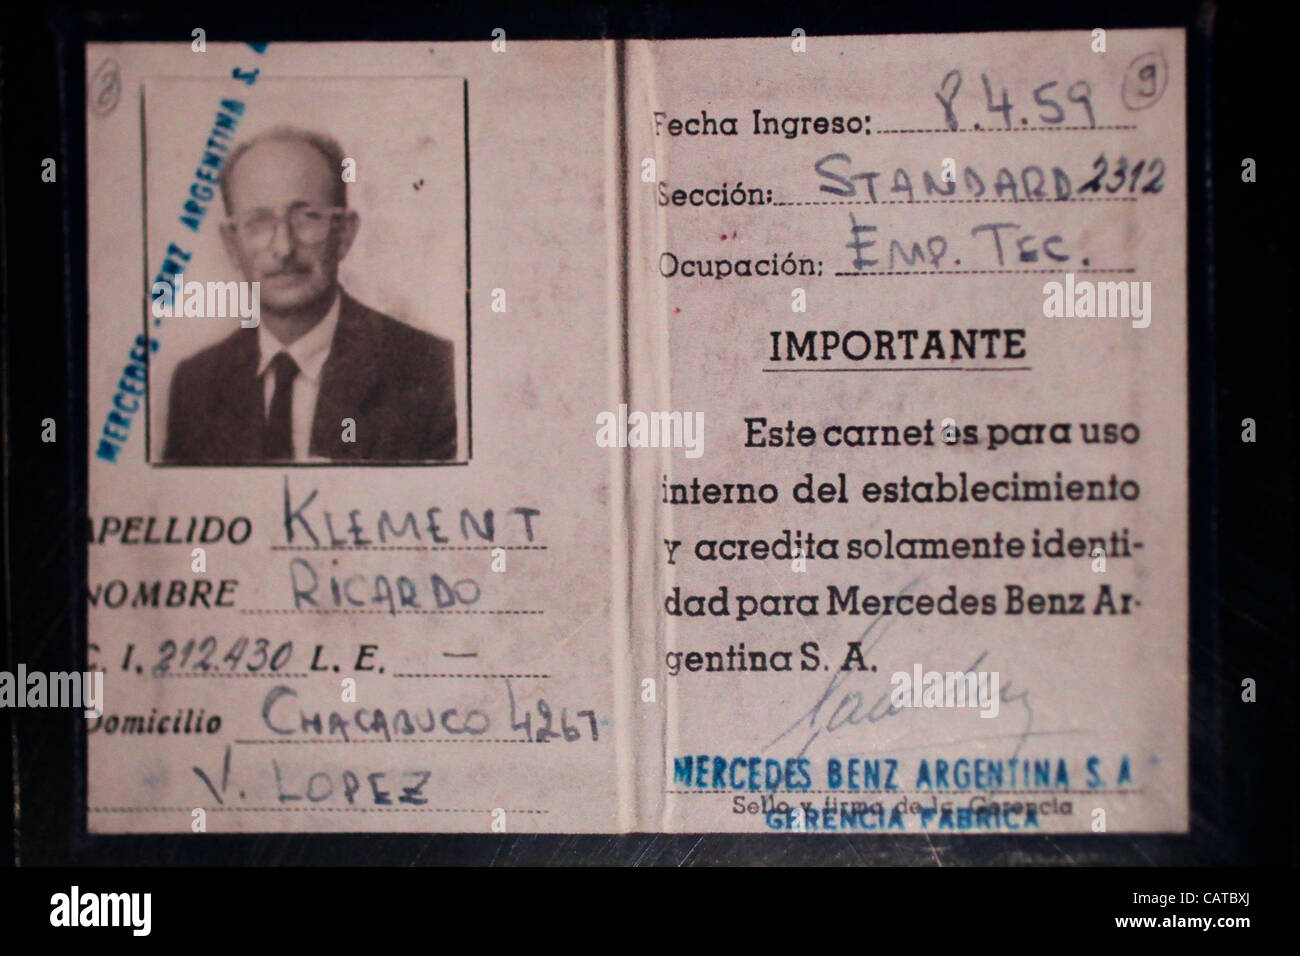 8
MERCEDES - BENZ ARGENTINA S. A
APELLIDO KLEMENT
NOMBRE RICARDO
C. I. 212.430 L. E. —
Domicilio CHACABUCO 4267
V. LOPEZ
9
Fecha Ingreso: 8.4.59
Sección: STANDARD 2312
Ocupación: EMP. TEC.
IMPORTANTE
Este carnet es para uso
interno del establecimiento
y acredita solamente identi-
dad para Mercedes Benz Ar-
gentina S. A.
MERCEDES BENZ ARGENTINA S. A
Sello y firma de la Gerencia
GERENCIA FABRICA
alamy stock photo
alamy
Image ID: CATBXJ
www.alamy.com